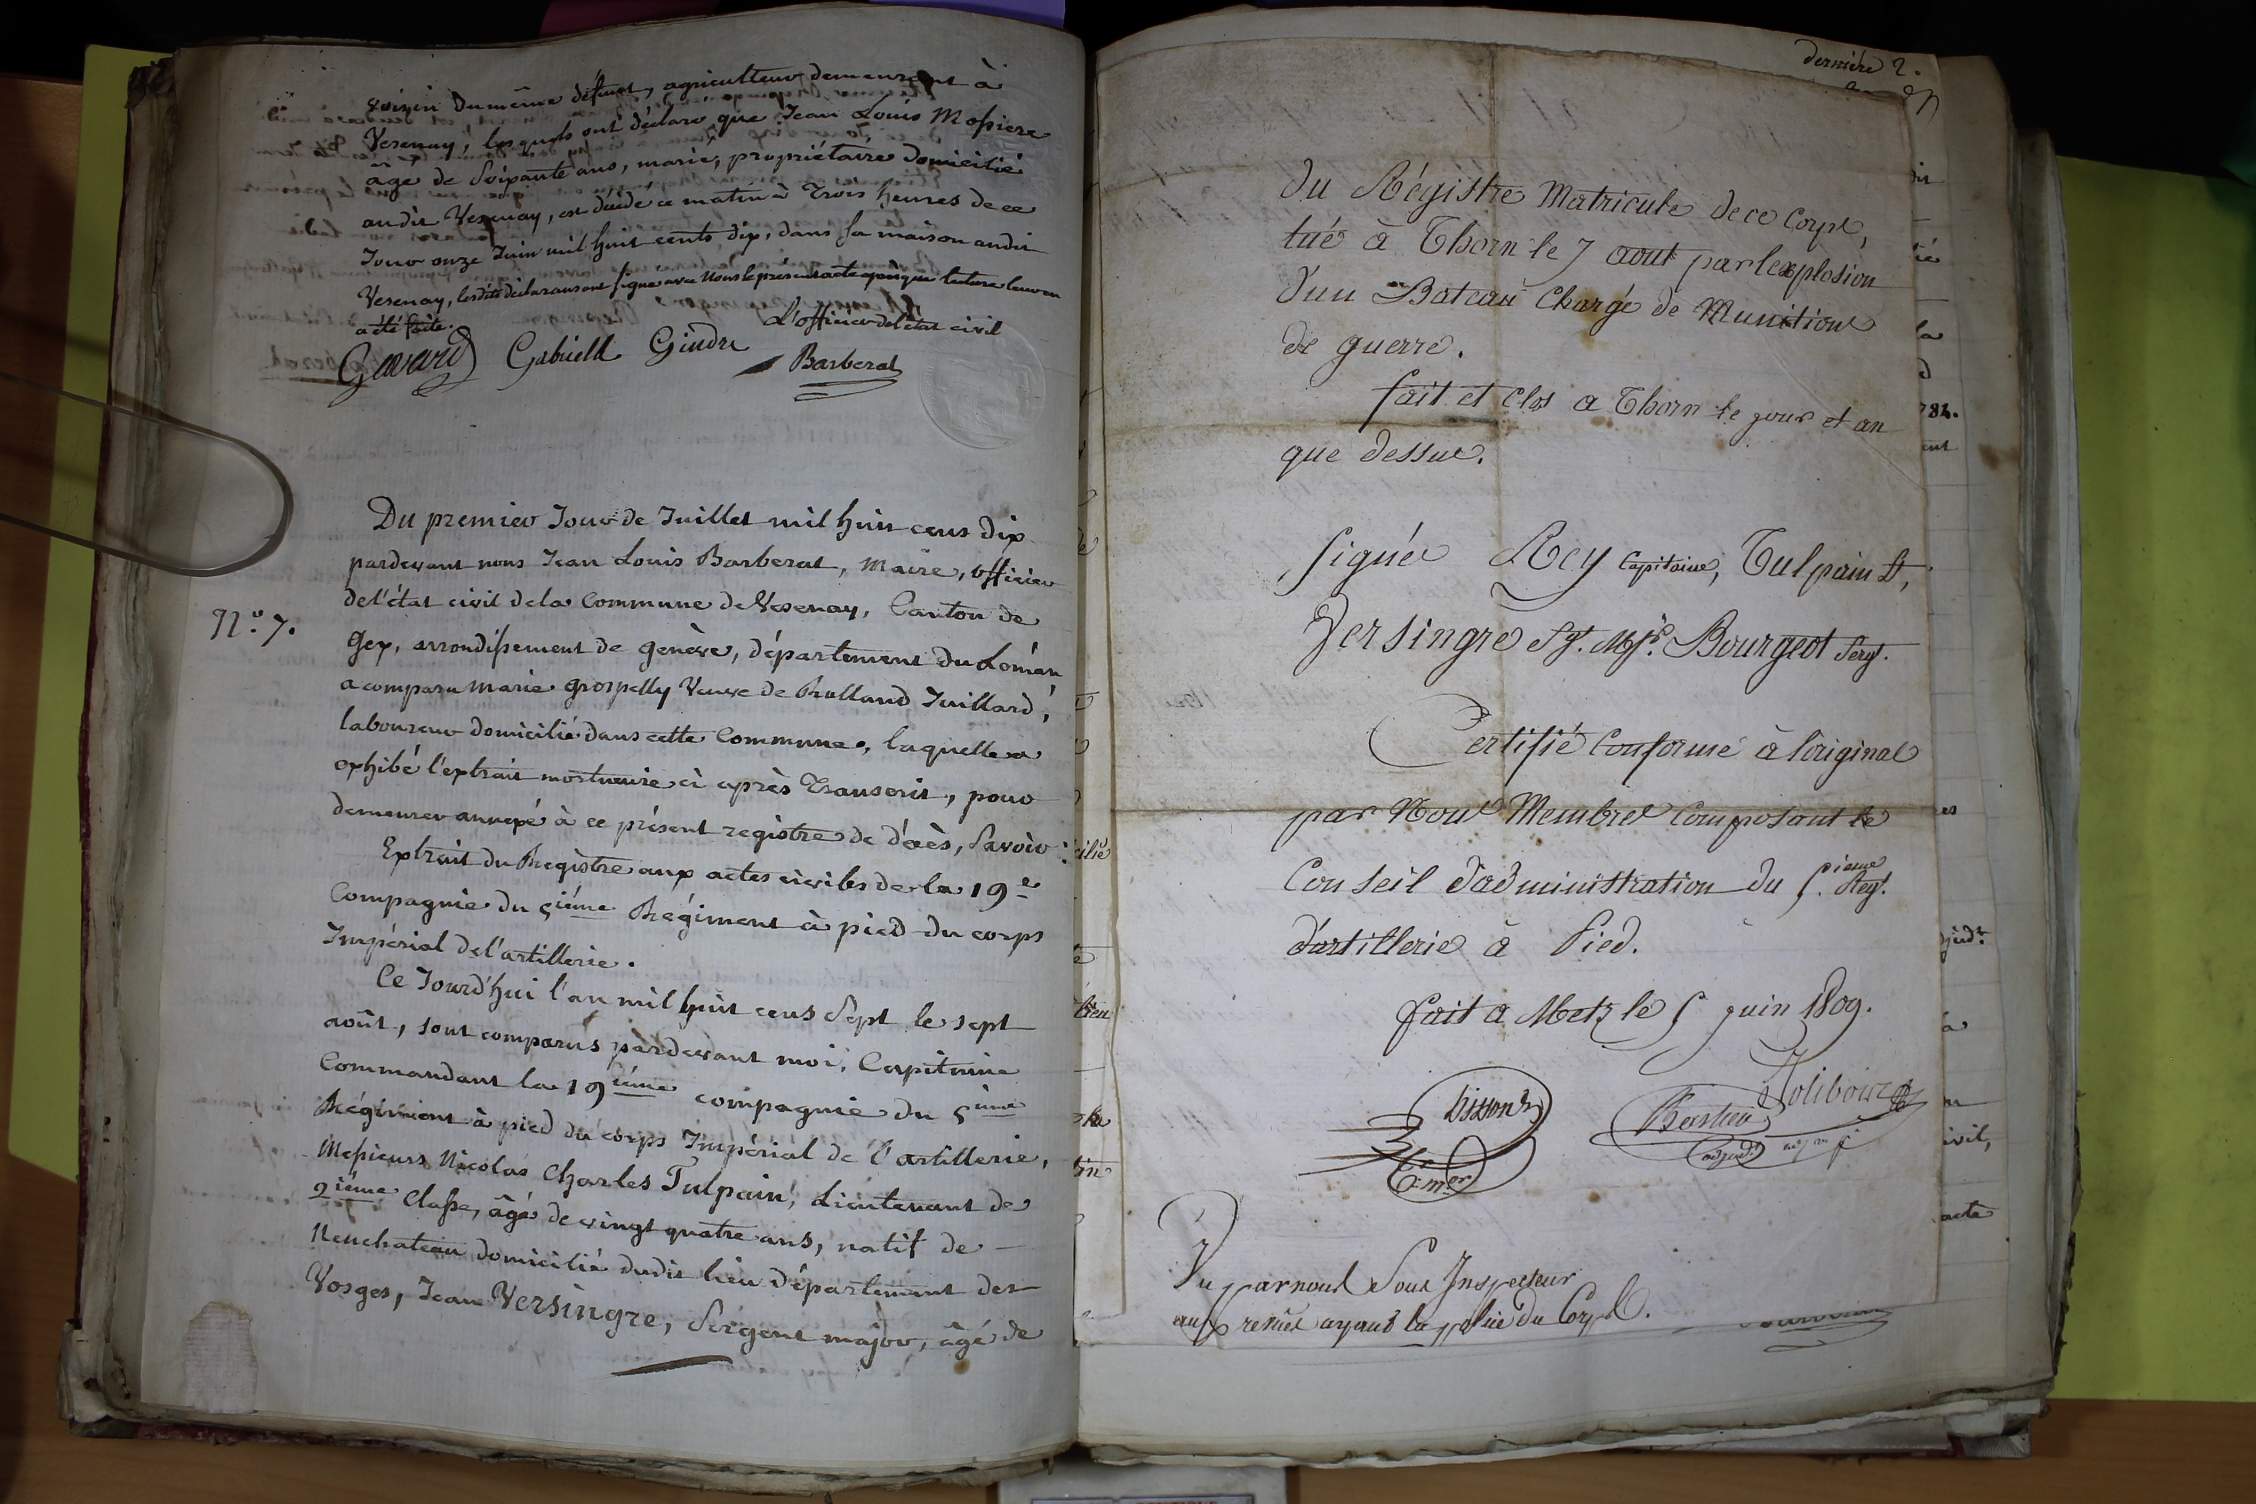 voisin du même défunt, agriculteur demeurant à
Vesenay, lesquels ont déclaré que Jean Louis Mossiere
âgé de Soixante ans, marié, propriétaire domicilié
audit Vesenay, est décédé ce matin à Trois heures de ce
Jour onze Juin mil huit cents dix, dans sa maison audit
Vesenay, lesdits déclarans ont signé avec Nous le présent acte après que lecture leur en
a été faite.
L'officier de l'état civil
Gavard Gabriell Gindre Barberat
Du premier Jour de Juillet mil huit cens dix
pardevant nous Jean Louis Barberat, Maire, officier
de l'état civil de la Commune de Vesenay, Canton de
N.º 7.
Gex, arrondissement de genève, département du Léman
a comparu Marie grospelly Veuve de Rolland Juillard,
laboureur domicilié dans cette Commune, laquelle a
exhibé l'extrait mortuaire ci après Transcrit, pour
demeurer annexé à ce présent registre de décès, Savoir :
Extrait du Registre aux actes civiles de la 19e
Compagnie du 5ième Régiment à pied du corps
Impérial de l'artillerie.
Ce Jourd'hui l'an mil huit cens Sept le sept
août, sont comparus pardevant moi, Capitaine
Commandant la 19ième compagnie du 5ième
Régiment à pied du corps Impérial de l'artillerie,
Messieurs Nicolas Charles Tulpain, Lieutenant de
2ième Classe, âgé de vingt quatre ans, natif de
Neuchateau domicilié dudit lieu Département des
Vosges, Jean Versingre, Sergent major, âgé de
dernière 2.
du Régistre Matricule de ce Corps,
tué à Thorn le 7 aout par lexplosion
d'un Bateau Chargé de Munitions
de guerre.
fait et Clos a Thorn le jour et an
que dessus.
Signé Rey Capitaine, Tulpain Lt,
Versingre Sgt. Mjr. Bourgeot Sergt.
Certifié Conforme à l'original
par Nous Membres Composant le
Conseil d'administration du 5.ieme Regt.
d'artillerie à Pied.
fait a Metz le 5 juin 1809.
Bastien
Vu par nous Sous Inspecteur
aux revues ayant la police du Corps.
784.
civil,
acte